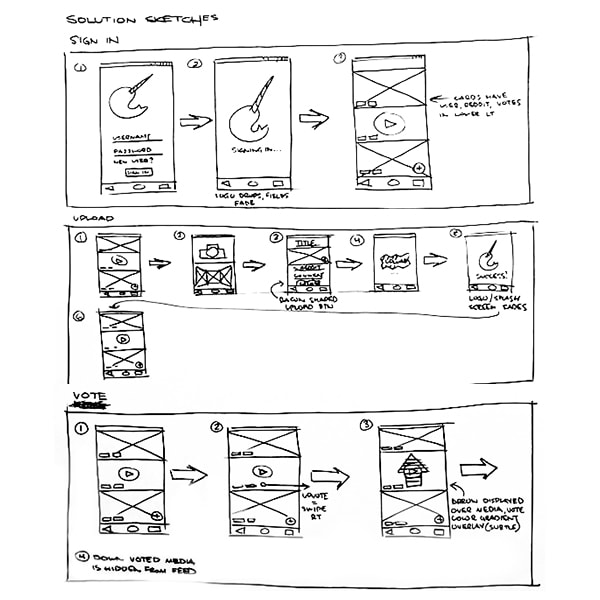 SOLUTION SKETCHES
SIGN IN
1
2
3
USERNAME
PASSWORD
NEW USER?
SIGN IN
SIGNING IN...
LOGO DROPS, FIELDS
FADE
CARDS HAVE
USER, REDDIT, VOTES
IN LOWER LT
UPLOAD
1
3
4
5
TITLE
SUBMIT
SUCCESS!
BACON SHAPED
UPLOAD BTN
LOGO/SPLASH
SCREEN FADES
6
VOTE
1
2
3
UPVOTE
=
SWIPE
RT
BACON DISPLAYED
OVER MEDIA, VOTE
COLOR GRADIENT
OVERLAY (SUBTLE)
4 DOWN VOTED MEDIA
IS HIDDEN FROM FEED